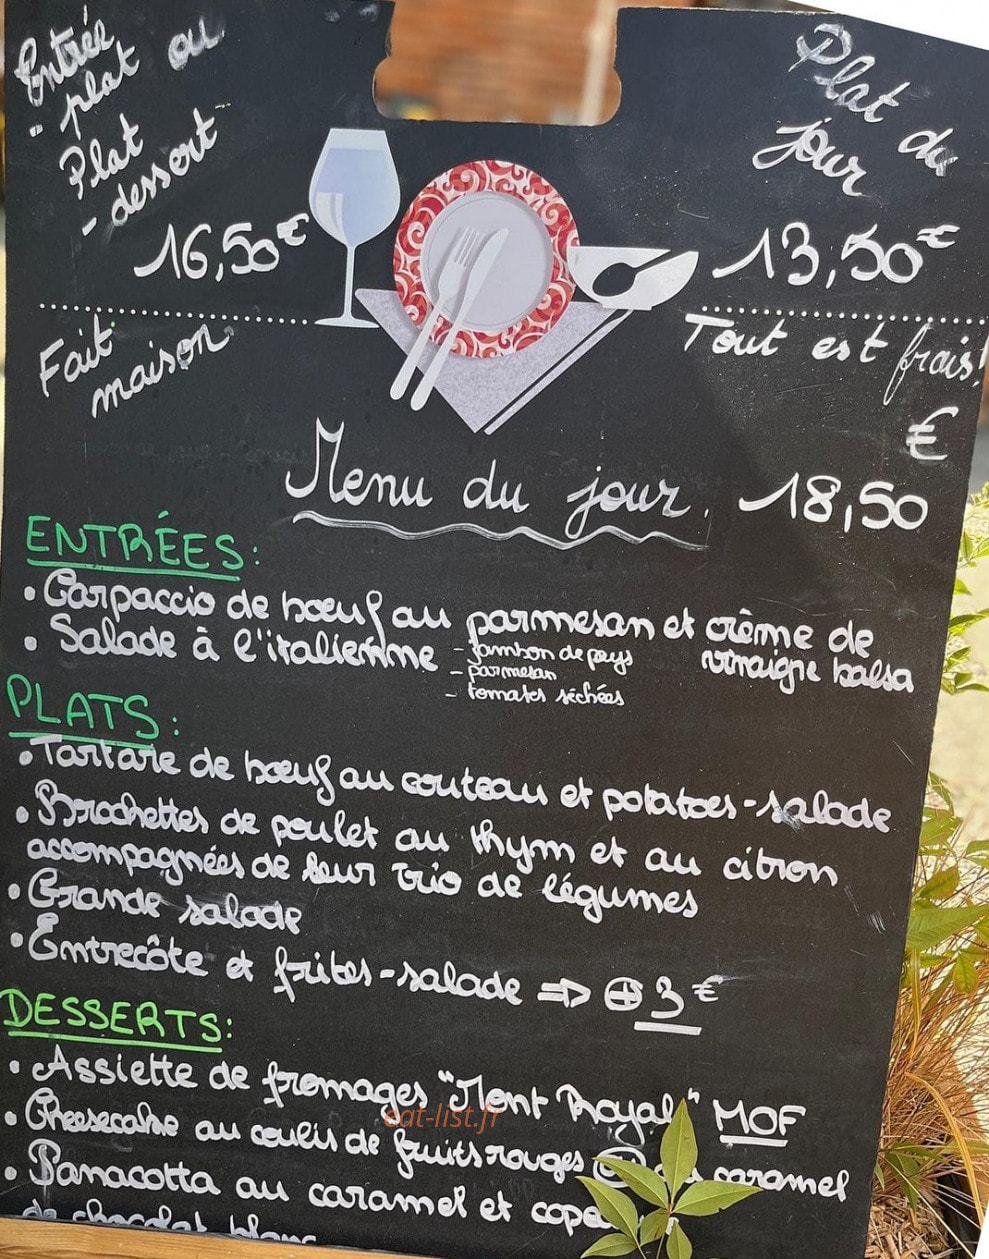 Entrée
- plat ou
Plat
- dessert
16,50€
Plat du
jour
13,50€
Fait
maison
Tout est frais!
€
Menu du jour. 18,50
ENTRÉES:
• Carpaccio de boeuf au parmesan et crème de
vinaigre balsa
• Salade à l'italienne - Jambon de pays
- parmesan
- tomates séchées
PLATS:
• Tartare de boeuf au couteau et potatoes-salade
• Brochettes de poulet au thym et au citron
accompagnées de leur trio de légumes
• Grande salade
• Entrecôte et frites-salade ⇒ ⊕ 3€
DESSERTS:
• Assiette de fromages "Mont Royal" MOF
• Cheesecake au coulis de fruits rouges caramel
• Panacotta au caramel et
de chocolat blanc
eat-list.fr